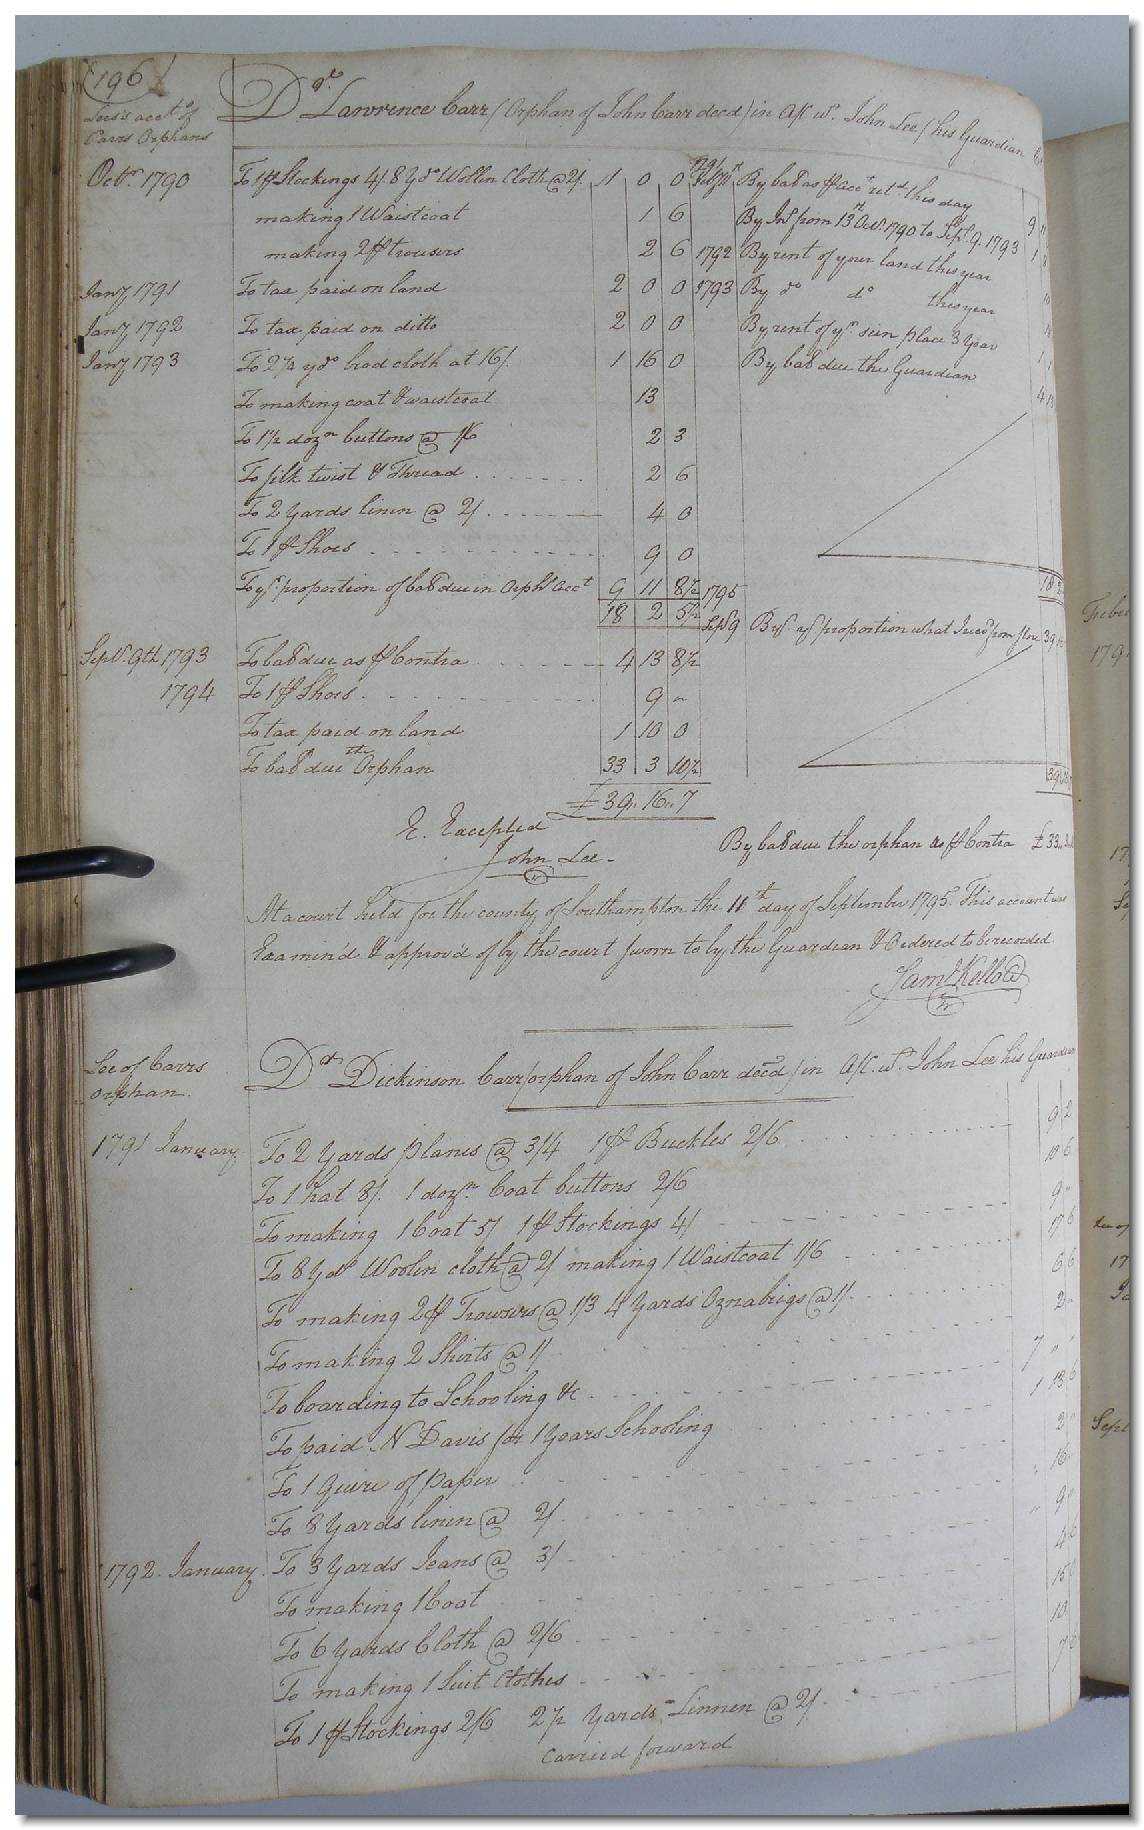 196
Lees's acct. of
Carrs Orphans
Dr. Lawrence Carr (Orphan of John Carr decd) in A/C wt. John Lee (his Guardian
Octr. 1790 To 1 pr Stockings 4/ 8 Yds Wollin Cloth @ 2/ 1 0 0
making 1 Waistcoat 1 6
making 2 pr trousers 2 6
Jany 1791 To tax paid on land 2 0 0
Jany 1792 To tax paid on ditto 2 0 0
Jany 1793 To 2 1/4 yds brod cloth at 16/. 1 16 0
To making coat & waistcoat 13
To 1 1/2 dozn. buttons @ 1/6 2 3
To silk twist & Thread 2 6
To 2 Yards linen @ 2/ 4 0
To 1 pr Shoes 9 0
To yr. proportion of balle due in Orphs Acct 9 11 8 1/2
18 2 5 1/2
By balle as pr Acct retd. this day 9
By Int. from 13th Octr. 1790 to Sept. 9. 1793 1
1792 By rent of your land this year
1793 By do do this year
By rent of yr. place 3 Year
By balle due the Guardian 4 13
18 2
1795
Sept 9 By yr proportion what I recd from 39
Sepr. 9th 1793 To balle due as pr Contra 4 13 8 1/2
1794 To 1 pr Shoes 9 "
To tax paid on land 1 10 0
To balle due the Orphan 33 3 10 1/2
£39 " 16 " 7
E. Excepted
John Lee
By balle due the orphan as pr Contra £33 " 3
At a court held for the county of Southampton the 11th day of September 1795. This account was
Examin'd & approv'd of by the court sworn to by the Guardian & Ordered to be recorded
Saml Kello
Lee of Carrs
orphan
Dr. Dickinson Carr (orphan of John Carr decd) in A/C. wt. John Lee his Guardian
1791 January To 2 Yards planes @ 3/4 1 pr Buckles 2/6 9 2
To 1 hat 8/. 1 dozn. Coat buttons 2/6 10 6
To making 1 Coat 5/ 1 pr Stockings 4/ 9 "
To 8 Yds Woolin cloth @ 2/ making 1 Waistcoat 1/6 17 6
To making 2 pr Trowsers @ 1/3 4 Yards Oznabrigs @ 1/. 6 6
To making 2 Shirts @ 1/ 2 "
To boarding to Schooling &c. 7 "
To paid N Davis for 1 Years Schooling 1 13 6
To 1 Quire of paper 2
To 8 Yards linen @ 2/. 16
1792. January. To 3 Yards Jeans @ 3/ 9
To making 1 Coat 4 6
To 6 Yards Cloth @ 2/6 15
To making 1 Suit Clothes 10
To 1 pr Stockings 2/6 2 1/2 Yards Linnen @ 2/. 7 6
Carried forward